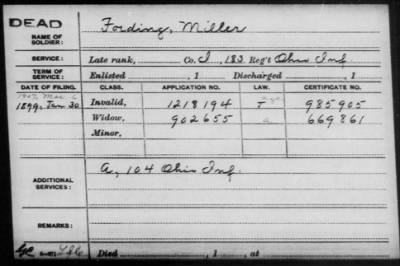 DEAD
NAME OF SOLDIER: Fording, Miller
SERVICE: Late rank, Co. I, 182 Reg't Ohio Inf.
TERM OF SERVICE: Enlisted , 1 Discharged , 1
DATE OF FILING. CLASS. APPLICATION NO. LAW. CERTIFICATE NO.
1899, Jan. 30 Invalid, 1218194 985905
Widow, 902655 669861
Minor,
ADDITIONAL SERVICES: A, 104 Ohio Inf.
REMARKS:
Died , 1 , at